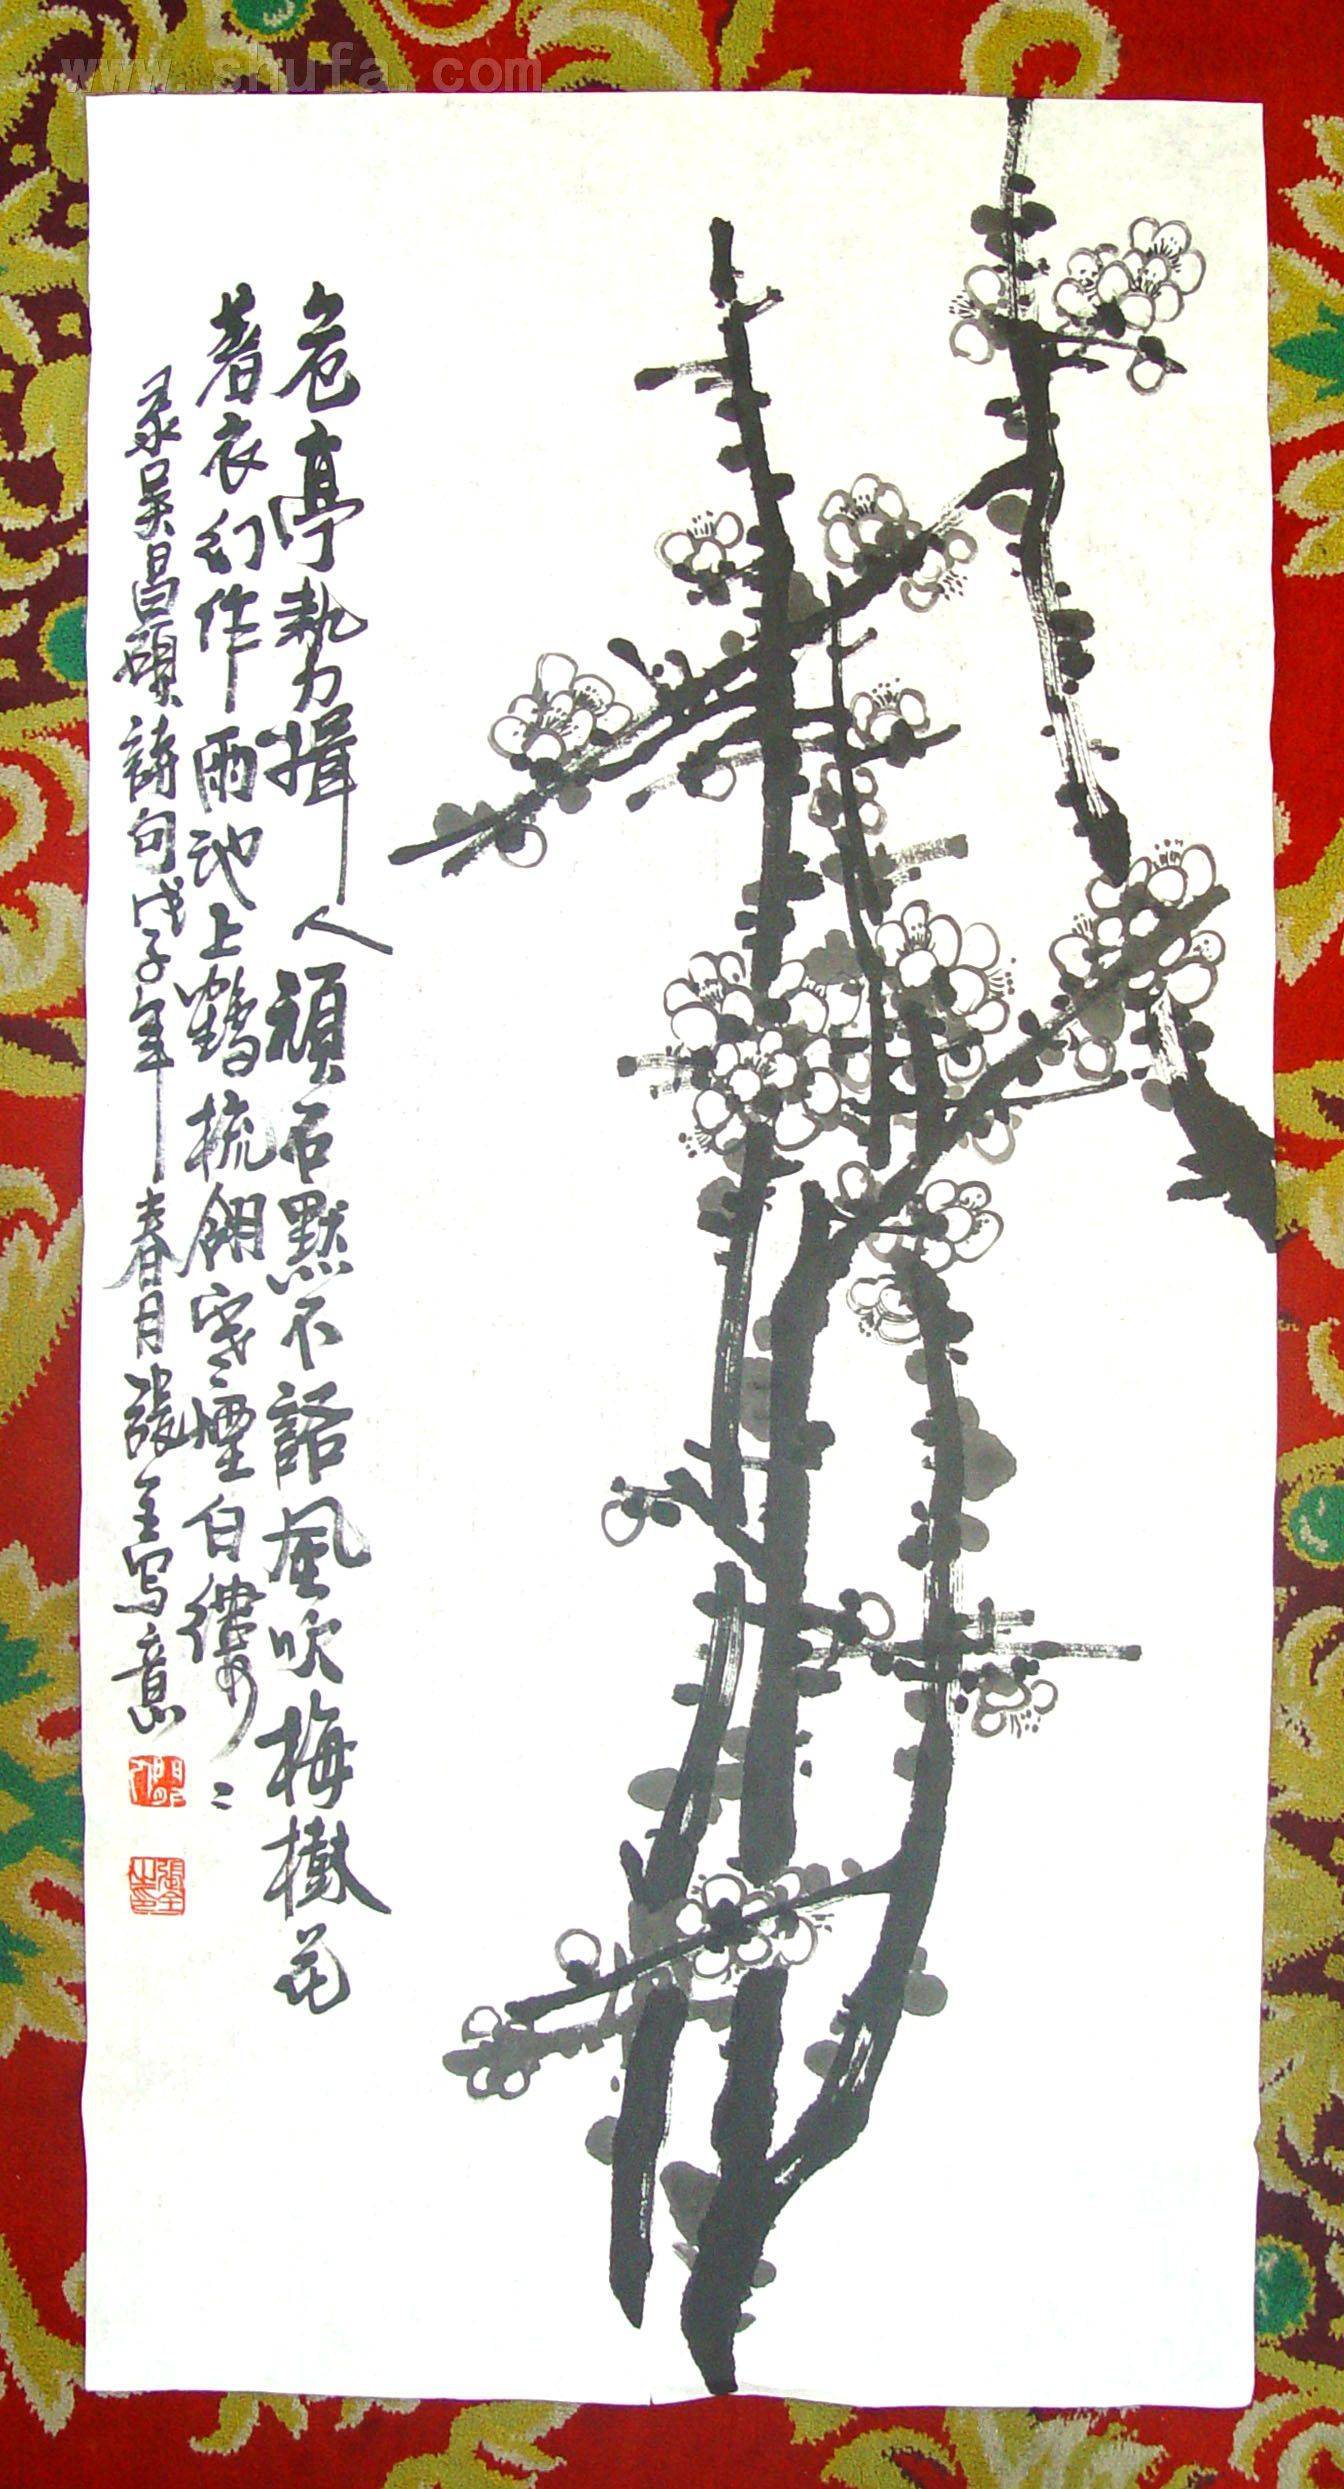 www.shufa.com
危亭勢力揖人頑石默不語風吹梅樹花
著衣幻作雨池上鶴梳翎寒煙白縷〻
录吴昌碩詩句戊子年春月張全写意